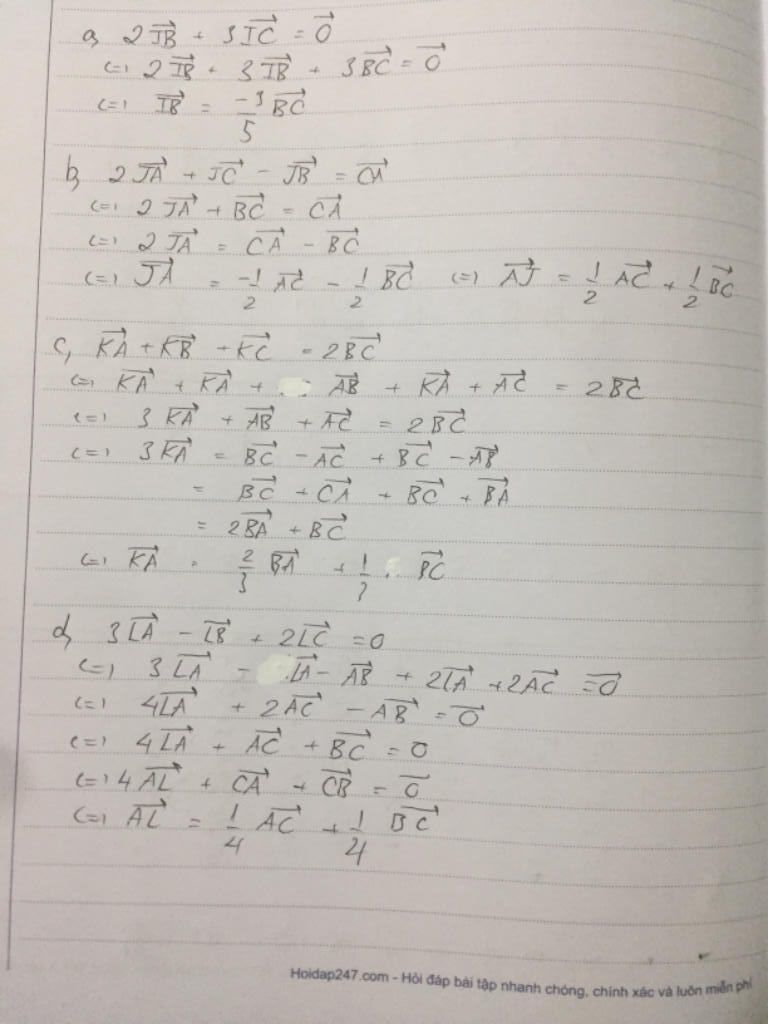 a, 2\overrightarrow{IB} + 3\overrightarrow{IC} = \overrightarrow{0}
<=> 2\overrightarrow{IB} + 3\overrightarrow{IB} + 3\overrightarrow{BC} = \overrightarrow{0}
<=> \overrightarrow{IB} = \frac{-3}{5}\overrightarrow{BC}
b, 2\overrightarrow{JA} + \overrightarrow{JC} - \overrightarrow{JB} = \overrightarrow{CA}
<=> 2\overrightarrow{JA} + \overrightarrow{BC} = \overrightarrow{CA}
<=> 2\overrightarrow{JA} = \overrightarrow{CA} - \overrightarrow{BC}
<=> \overrightarrow{JA} = \frac{-1}{2}\overrightarrow{AC} - \frac{1}{2}\overrightarrow{BC} <=> \overrightarrow{AJ} = \frac{1}{2}\overrightarrow{AC} + \frac{1}{2}\overrightarrow{BC}
c, \overrightarrow{KA} + \overrightarrow{KB} + \overrightarrow{KC} = 2\overrightarrow{BC}
<=> \overrightarrow{KA} + \overrightarrow{KA} + \overrightarrow{AB} + \overrightarrow{KA} + \overrightarrow{AC} = 2\overrightarrow{BC}
<=> 3\overrightarrow{KA} + \overrightarrow{AB} + \overrightarrow{AC} = 2\overrightarrow{BC}
<=> 3\overrightarrow{KA} = \overrightarrow{BC} - \overrightarrow{AC} + \overrightarrow{BC} - \overrightarrow{AB}
= \overrightarrow{BC} + \overrightarrow{CA} + \overrightarrow{BC} + \overrightarrow{BA}
= 2\overrightarrow{BA} + \overrightarrow{BC}
<=> \overrightarrow{KA} = \frac{2}{3}\overrightarrow{BA} + \frac{1}{3}\overrightarrow{BC}
d, 3\overrightarrow{LA} - \overrightarrow{LB} + 2\overrightarrow{LC} = 0
<=> 3\overrightarrow{LA} - \overrightarrow{LA} - \overrightarrow{AB} + 2\overrightarrow{LA} + 2\overrightarrow{AC} = \overrightarrow{0}
<=> 4\overrightarrow{LA} + 2\overrightarrow{AC} - \overrightarrow{AB} = \overrightarrow{0}
<=> 4\overrightarrow{LA} + \overrightarrow{AC} + \overrightarrow{BC} = 0
<=> 4\overrightarrow{AL} + \overrightarrow{CA} + \overrightarrow{CB} = \overrightarrow{0}
<=> \overrightarrow{AL} = \frac{1}{4}\overrightarrow{AC} + \frac{1}{4}\overrightarrow{BC}
Hoidap247.com - Hỏi đáp bài tập nhanh chóng, chính xác và luôn miễn phí